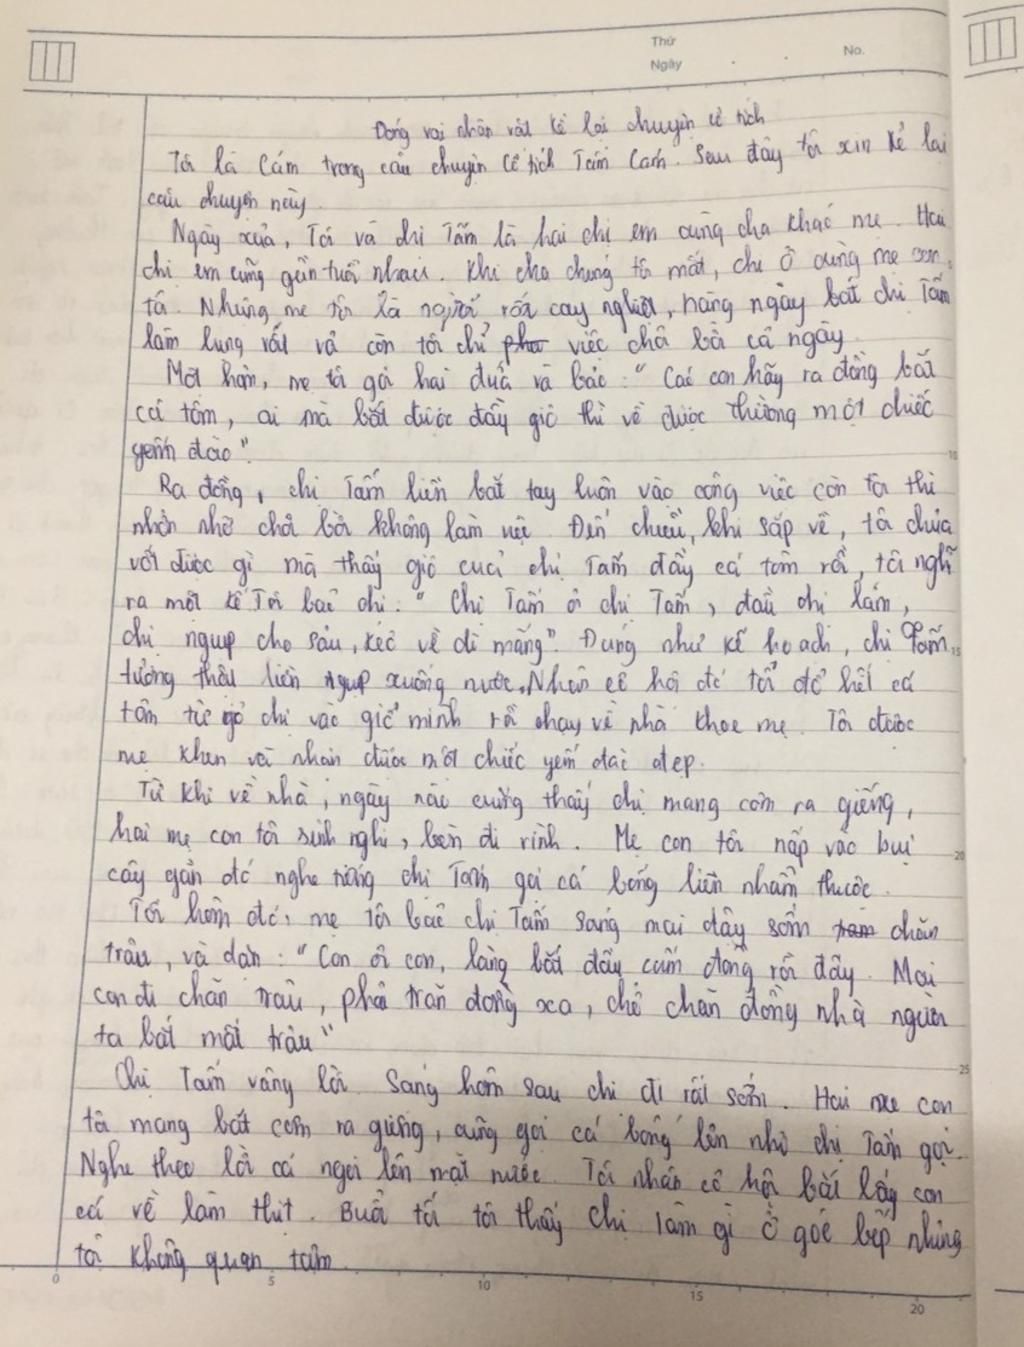 Thứ
Ngày
No.
Đóng vai nhân vật kể lại chuyện cổ tích
Tôi là Cám trong câu chuyện cổ tích Tấm Cám. Sau đây tôi xin kể lại
câu chuyện này.
Ngày xửa, Tôi và chị Tấm là hai chị em cùng cha khác mẹ. Hai
chị em cũng gần tuổi nhau. Khi cha chúng tôi mất, chị ở cùng mẹ con
tôi. Nhưng mẹ tôi là người rất cay nghiệt, hàng ngày bắt chị Tấm
làm lụng vất vả còn tôi chỉ việc chơi bời cả ngày.
Một hôm, mẹ tôi gọi hai đứa và bảo: "Các con hãy ra đồng bắt
cá tôm, ai mà bắt được đầy giỏ thì về được thưởng một chiếc
yếm đào".
Ra đồng, chị Tấm liền bắt tay luôn vào công việc còn tôi thì
nhởn nhơ chơi bời không làm việc. Đến chiều, khi sắp về, tôi chưa
vớt được gì mà thấy giỏ của chị Tấm đầy cá tôm rồi, tôi nghĩ
ra một kế Tôi bảo chị: "Chị Tấm ơi chị Tấm, đầu chị lấm,
chị ngụp cho sâu, kẻo về dì mắng". Đúng như kế hoạch, chị Tấm
tưởng thật liền ngụp xuống nước. Nhân cơ hội đó tôi đổ hết cá
tôm từ giỏ chị vào giỏ mình rồi chạy về nhà khoe mẹ. Tôi được
mẹ khen và nhận được một chiếc yếm đào đẹp.
Từ khi về nhà, ngày nào cũng thấy chị mang cơm ra giếng,
hai mẹ con tôi sinh nghi, bèn đi rình. Mẹ con tôi nấp vào bụi
cây gần đó nghe tiếng chị Tấm gọi cá bống liền nhẩm thuộc.
Tối hôm đó, mẹ tôi bảo chị Tấm sáng mai dậy sớm chăn
trâu, và dặn: "Con ơi con, làng bắt đầu cấm đồng rồi đấy. Mai
con đi chăn trâu, phải trăn đồng xa, chớ chăn đồng nhà người
ta bắt mất trâu"
Chị Tấm vâng lời. Sáng hôm sau chị đi rất sớm. Hai mẹ con
tôi mang bát cơm ra giếng, cũng gọi cá bống lên như chị Tấm gọi.
Nghe theo lời cá ngoi lên mặt nước. Tôi nhân cơ hội bắt lấy con
cá về làm thịt. Buổi tối tôi thấy chị làm gì ở góc bếp nhưng
tôi không quan tâm.
10
15
20
25
0
5
10
15
20